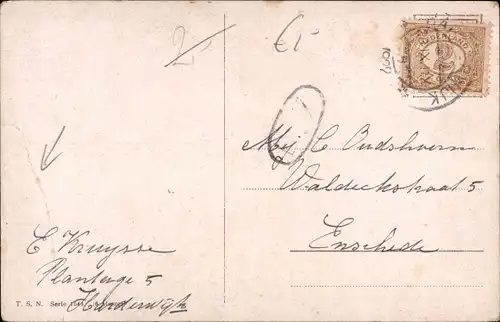 2,-
€-
NEDERLAND
2
Mej C Oudshoorn
Waldeckstraat 5
Enschede
E Kruysse
Plantage 5
Harderwijk
T. S. N. Serie